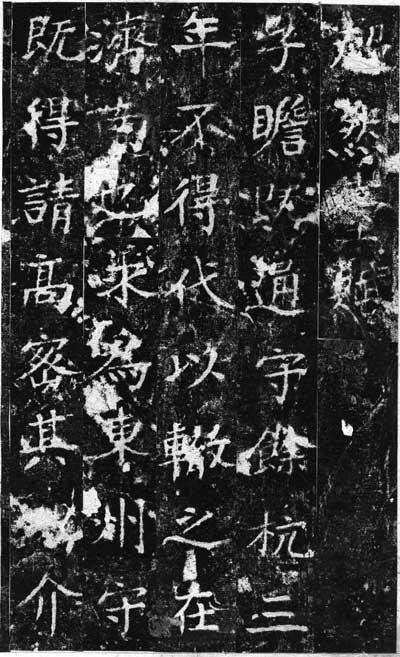 超然臺賦
子瞻既通守餘杭三
年不得代以轍之在
濟南也求爲東州守
既得請髙密其地介